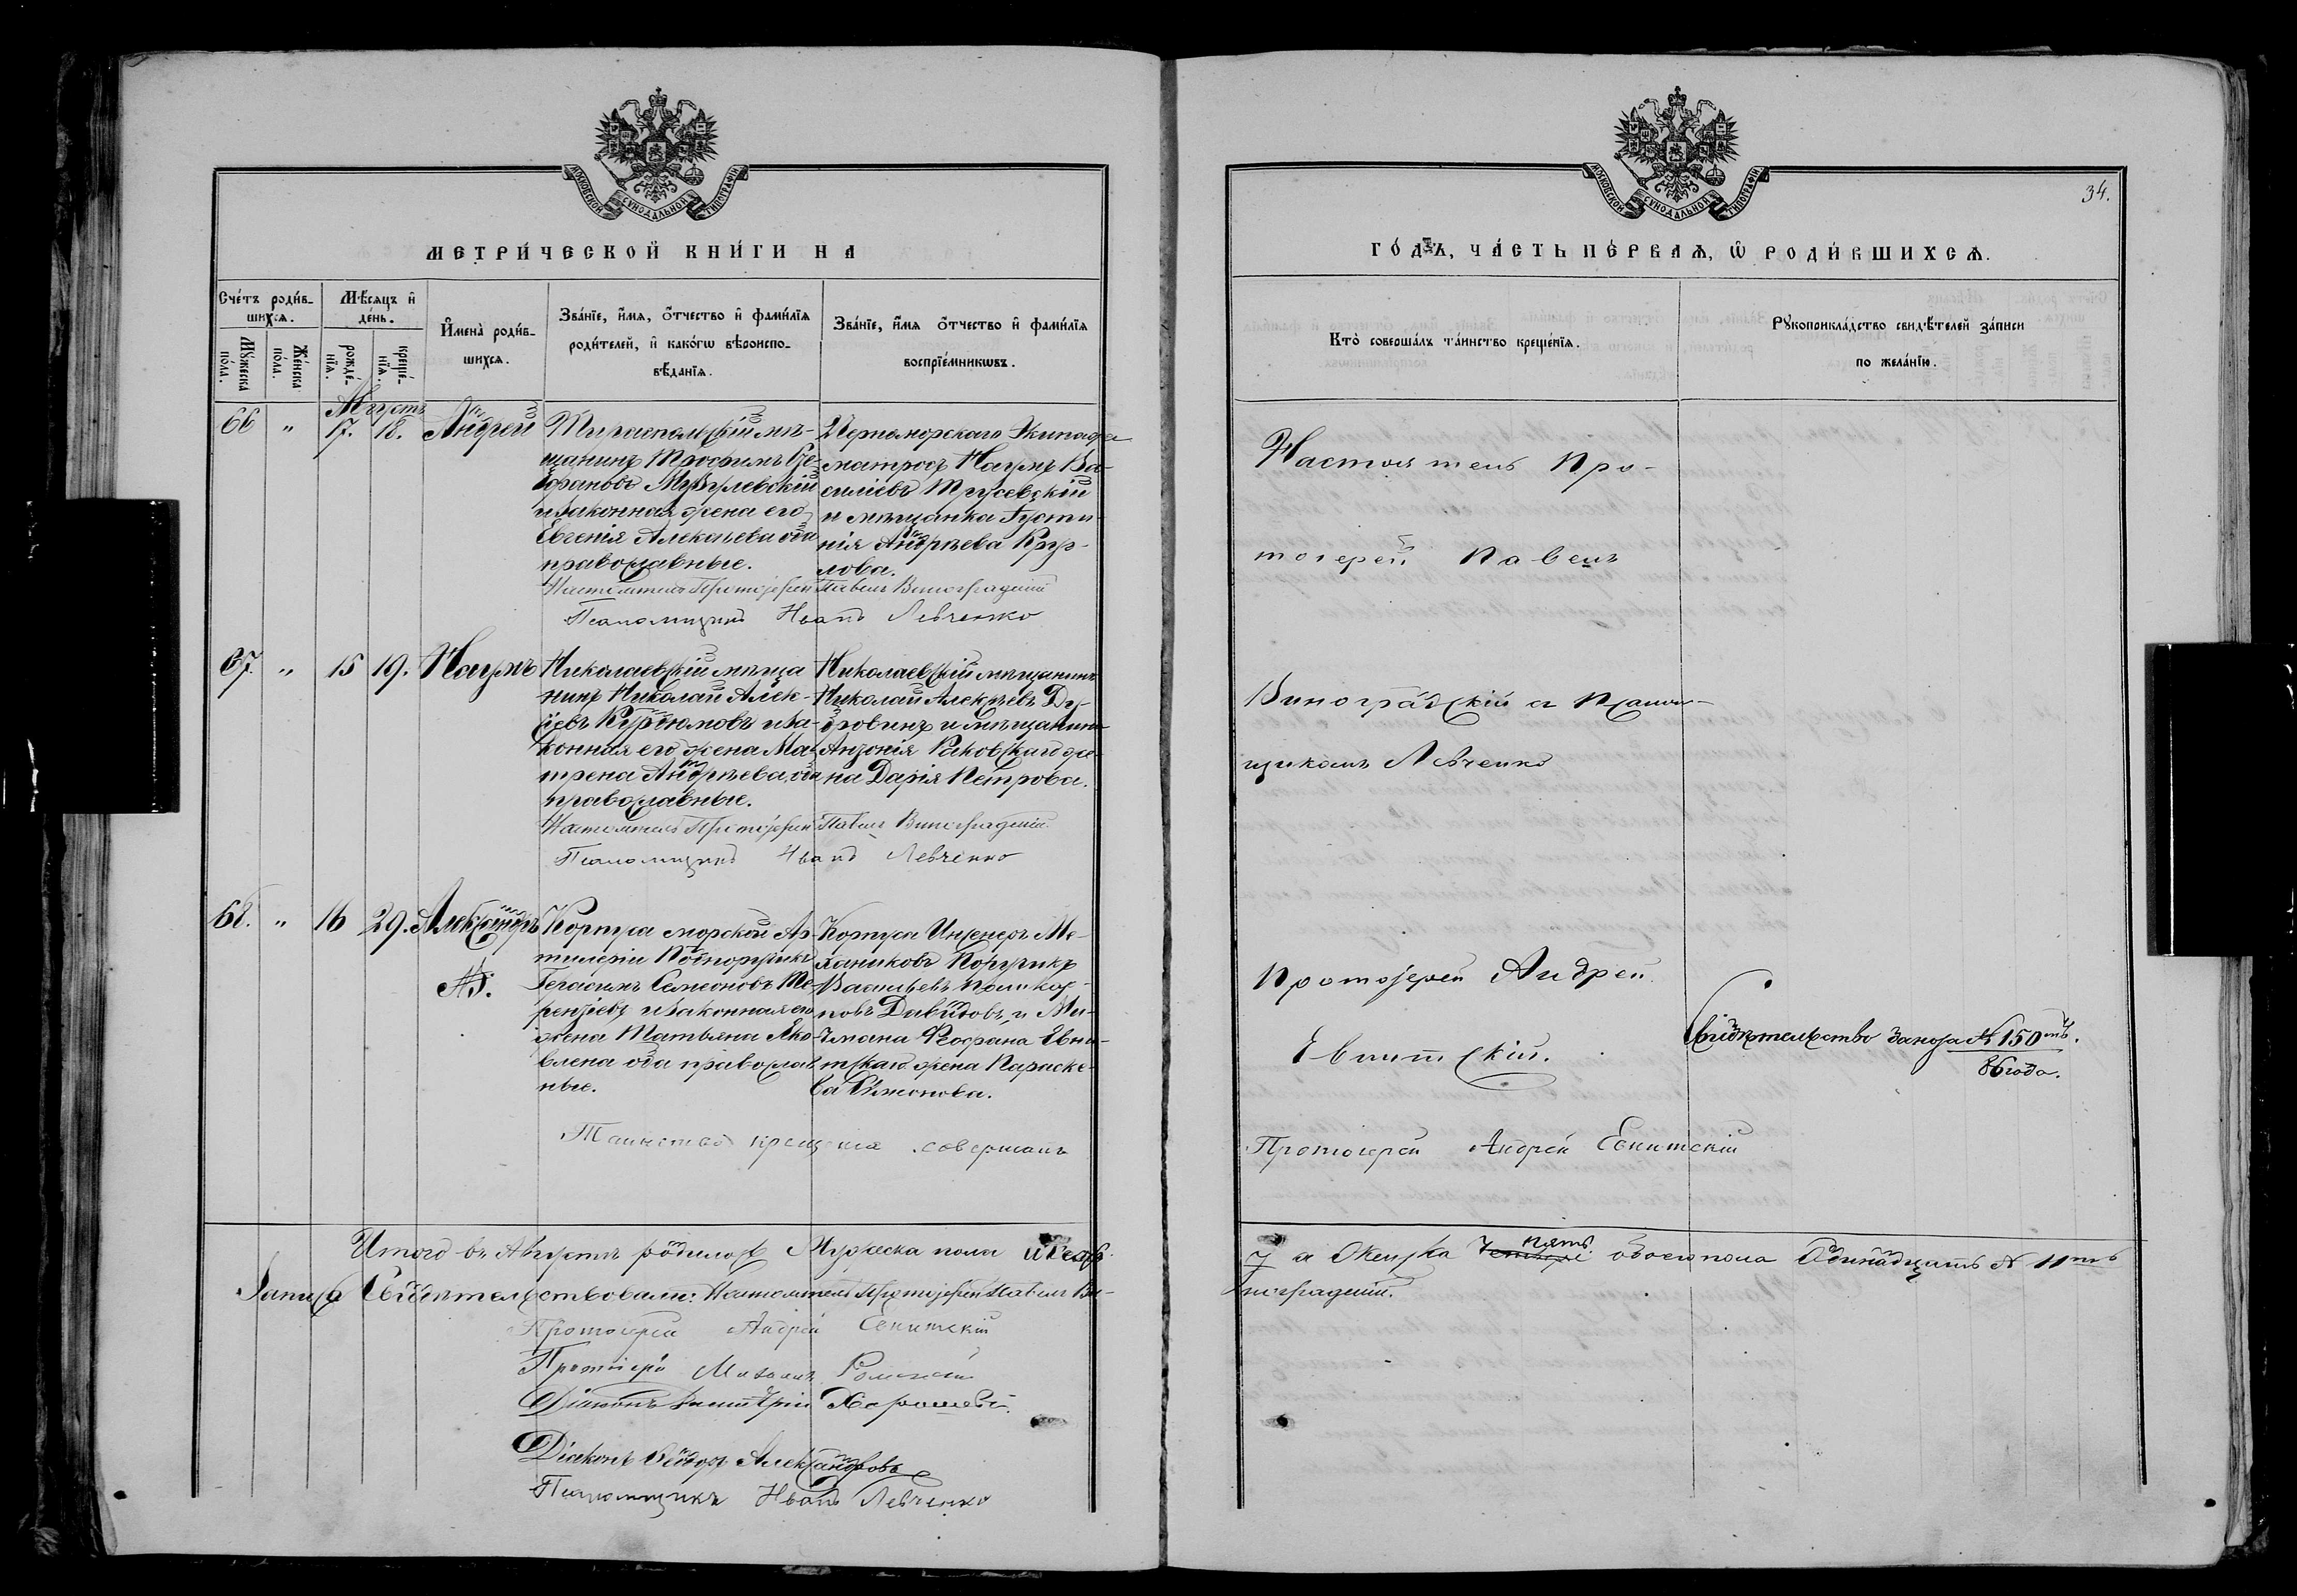 МОСКОВСКОЙ СУНОДАЛЬНОЙ ТИПОГРАФІИ
МЕТРИ́ЧЕСКОЙ КНИ́ГИ НА
Сче́тъ роди́в-
шихсѧ.
Мѣ́сѧцъ и҆
де́нь.
Мꙋ́жеска
по́ла.
Же́нска
по́ла.
рожде́-
нїѧ.
креще́-
нїѧ.
И҆мена̀ роди́в-
шихсѧ.
Зва́нїе, и҆́мѧ, ѻ҆́тчество и҆ фами́лїѧ
роди́телей, и҆ како́гѡ вѣроиспо-
вѣ́данїѧ.
Зва́нїе, и҆́мѧ ѻ҆́тчество и҆ фами́лїѧ
воспрїе́мникѡвъ.
Августъ
66 " 17. 18. Андрей
Тираспольскій мѣ-
щанинъ Трофимъ
и законная жена его
Евгенія Алексѣева оба
православные.
Черноморскаго Экипажа
матросъ Наумъ Ва-
силіевъ Трусевскій
и мѣщанка Густи-
нія Андрѣева Кру-
лова.
Настоятель Протоіерей Павелъ Виноградскій
Псаломщикъ Иванъ Левченко
67. " 15 19. Наумъ
Николаевскій мѣща
нинъ Николай Алек-
ѣевъ и за-
конная его жена Ма-
трена Андрѣева, оба
православные.
Николаевскій мѣщанинъ
Николай Алексѣевъ Ду-
бровинъ и мѣщанина
Антонія Раковскаго же-
на Дарія Петрова.
Настоятель Протоіерей Павелъ Виноградскій.
Псаломщикъ Иванъ Левченко
68. " 16 29. Александръ
Корпуса морской Ар-
тилеріи Подпоручикъ
Герасимъ Семеоновъ Те-
рентіевъ и законная его
жена Татьяна Яко-
влева оба православ
ные.
Корпуса Инженеръ Ме-
хаников Поручикъ
Василіевъ
Давидовъ, и Ми-
чмана Феофана Евни-
тскаго жена Параске-
ва Симонова.
Таинство крещенія совершалъ
Итого въ Августѣ родилось Мужеска пола
Запись Свидѣтельствовали: Настоятель Протоіерей Павелъ Ви-
Протоіерей Андрей Евнитскій
Протоіерей Михаилъ
Діаконъ Димитрій
Діаконъ Ѳеодоръ Александровъ
Псаломщикъ Иванъ Левченко
МОСКОВСКОЙ СУНОДАЛЬНОЙ ТИПОГРАФІИ
34.
ГО́ДЪ, ЧА́СТЬ ПЕ́РВАѦ, Ѽ РОДИ́ВШИХСѦ.
Кто̀ соверша́лъ та́инство креще́нїѧ.
Рꙋкоприкла́дство свидѣ́телей за́писи
по жела́нїю.
Настоятель Про-
тоіерей Павелъ
Виноградскій съ Псалом-
щикомъ Левченко
Протоіерей Андрей
Евнитскій.
Свидѣтельство за № 150мъ.
86 года.
Протоіерей Андрей Евнитскій
7 а Женска Четыре пять. обоего пола Одинадцать № 11ть
ноградскій.